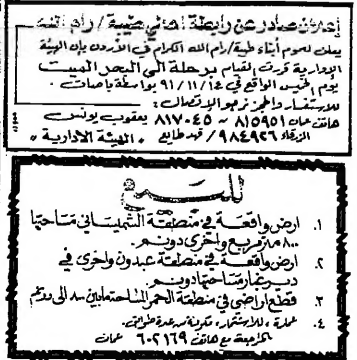 إعلان صادر عن رابطة أهالي طيبة / رام الله
يعلن لعموم أبناء طيبة/رام الله الكرام في الأردن بأن الهيئة
الإدارية قررت القيام برحلة الى البحر الميت
يوم الخميس الواقع في ٩١/١١/١٤ بواسطة باصات.
للاستفسار والحجز نرجو الاتصال:
هاتف عمان ٨١٥٩٥١ – ٨١٧٠٤٥ يعقوب يونس
الزرقاء ٩٨٤٩٢٦ / فهد طايع
"الهيئة الادارية"
للبيع
١. ارض واقعة في منطقة الشميساني مساحتها
٨٠٠ متر مربع واخرى دونم.
٢. ارض واقعة في منطقة عبدون واخرى في
دير غبار مساحتها دونم.
٣. قطع اراضي في منطقة الحمر المساحة مابين الى دونم
٤. عمارة للاستثمار مكونة من عدة طوابق.
هاتف ٦٠٢١٦٩ عمان